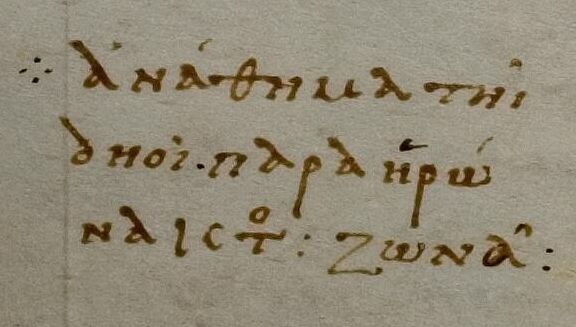 ⁘ ἀνάθημα τηῒ
δηοῒ. παρα ἥρώ
ναις τͦ : ζωνᾶ :